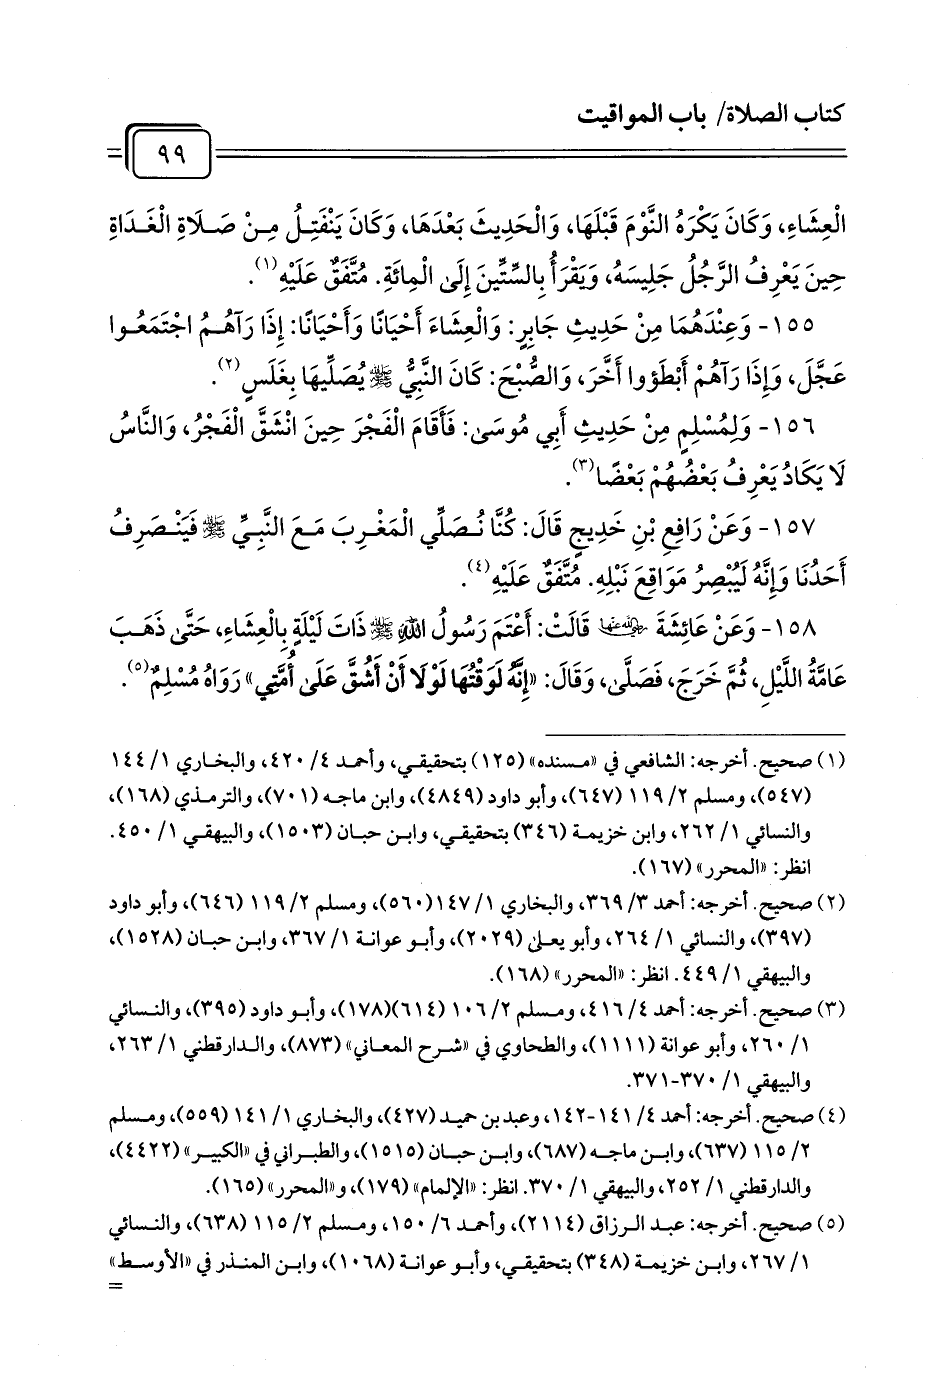 كتاب الصلاة/ باب المواقيت
٩٩
الْعِشَاءِ، وَكَانَ يَكْرَهُ النَّوْمَ قَبْلَهَا، وَالْحَدِيثَ بَعْدَهَا، وَكَانَ يَنْفَتِلُ مِنْ صَلَاةِ الْغَدَاةِ
حِينَ يَعْرِفُ الرَّجُلُ جَلِيسَهُ، وَيَقْرَأُ بِالسِّتِّينَ إِلَىٰ الْمِائَةِ. مُتَّفَقٌ عَلَيْهِ(١).
١٥٥- وَعِنْدَهُمَا مِنْ حَدِيثِ جَابِرٍ: وَالْعِشَاءَ أَحْيَانًا وَأَحْيَانًا: إِذَا رَآهُمُ اجْتَمَعُوا
عَجَّلَ، وَإِذَا رَآهُمْ أَبْطَؤوا أَخَّرَ، وَالصُّبْحَ: كَانَ النَّبِيُّ ﷺ يُصَلِّيهَا بِغَلَسٍ(٢).
١٥٦- وَلِمُسْلِمٍ مِنْ حَدِيثِ أَبِي مُوسَىٰ: فَأَقَامَ الْفَجْرَ حِينَ انْشَقَّ الْفَجْرُ، وَالنَّاسُ
لَا يَكَادُ يَعْرِفُ بَعْضُهُمْ بَعْضًا(٣).
١٥٧- وَعَنْ رَافِعِ بْنِ خَدِيجٍ قَالَ: كُنَّا نُصَلِّي الْمَغْرِبَ مَعَ النَّبِيِّ ﷺ فَيَنْصَرِفُ
أَحَدُنَا وَإِنَّهُ لَيُبْصِرُ مَوَاقِعَ نَبْلِهِ. مُتَّفَقٌ عَلَيْهِ(٤).
١٥٨- وَعَنْ عَائِشَةَ رضي الله عنها قَالَتْ: أَعْتَمَ رَسُولُ اللهِ ﷺ ذَاتَ لَيْلَةٍ بِالْعِشَاءِ، حَتَّىٰ ذَهَبَ
عَامَّةُ اللَّيْلِ، ثُمَّ خَرَجَ، فَصَلَّىٰ، وَقَالَ: «إِنَّهُ لَوَقْتُهَا لَوْلَا أَنْ أَشُقَّ عَلَىٰ أُمَّتِي» رَوَاهُ مُسْلِمٌ(٥).
(١) صحيح. أخرجه: الشافعي في «مسنده» (١٢٥) بتحقيقي، وأحمد ٤/ ٤٢٠، والبخاري ١/ ١٤٤
(٥٤٧)، ومسلم ٢/ ١١٩ (٦٤٧)، وأبو داود (٤٨٤٩)، وابن ماجه (٧٠١)، والترمذي (١٦٨)،
والنسائي ١/ ٢٦٢، وابن خزيمة (٣٤٦) بتحقيقي، وابن حبان (١٥٠٣)، والبيهقي ١/ ٤٥٠.
انظر: «المحرر» (١٦٧).
(٢) صحيح. أخرجه: أحمد ٣/ ٣٦٩، والبخاري ١/ ١٤٧(٥٦٠)، ومسلم ٢/ ١١٩ (٦٤٦)، وأبو داود
(٣٩٧)، والنسائي ١/ ٢٦٤، وأبو يعلى (٢٠٢٩)، وأبو عوانة ١/ ٣٦٧، وابن حبان (١٥٢٨)،
والبيهقي ١/ ٤٤٩. انظر: «المحرر» (١٦٨).
(٣) صحيح. أخرجه: أحمد ٤/ ٤١٦، ومسلم ٢/ ١٠٦ (٦١٤)(١٧٨)، وأبو داود (٣٩٥)، والنسائي
١/ ٢٦٠، وأبو عوانة (١١١١)، والطحاوي في «شرح المعاني» (٨٧٣)، والدارقطني ١/ ٢٦٣،
والبيهقي ١/ ٣٧٠-٣٧١.
(٤) صحيح. أخرجه: أحمد ٤/ ١٤١-١٤٢، وعبد بن حميد (٤٢٧)، والبخاري ١/ ١٤١ (٥٥٩)، ومسلم
٢/ ١١٥ (٦٣٧)، وابن ماجه (٦٨٧)، وابن حبان (١٥١٥)، والطبراني في «الكبير» (٤٤٢٢)،
والدارقطني ١/ ٢٥٢، والبيهقي ١/ ٣٧٠. انظر: «الإلمام» (١٧٩)، و«المحرر» (١٦٥).
(٥) صحيح. أخرجه: عبد الرزاق (٢١١٤)، وأحمد ٦/ ١٥٠، ومسلم ٢/ ١١٥ (٦٣٨)، والنسائي
١/ ٢٦٧، وابن خزيمة (٣٤٨) بتحقيقي، وأبو عوانة (١٠٦٨)، وابن المنذر في «الأوسط»
=